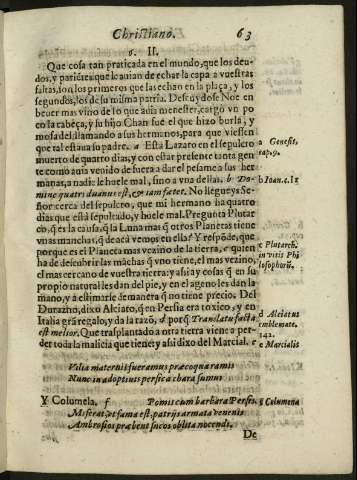 Christiano. 63
6. II.
Que cosa tan praticada en el mundo, que los deu-
dos, y pariẽtes que le auian de echar la capa a vuestras
faltas, son los primeros que las echan en la plaça, y los
segundos, los de su misma patria. Descuydose Noe en
beuer mas vino de lo que auia menester, cargò vn po
co la cabeça, y su hijo Chan fue el que hizo burla, y
mofa del, llamando a sus hermanos, para que viessen
que tal estaua su padre. a Esta Lazaro en el sepulcro
muerto de quatro dias, y con estar presente tanta gen
te como auia venido de fuera a dar el pesame a sus her
manas, a nadie le huele mal, sino a vna dellas. b Do-
mine quatriduanus est, & iam fœtet. No llegueys Se-
ñor cerca del sepulcro, que mi hermano ha quatro
dias que està sepultado, y huele mal. Pregunta Plutar
co, q̃ es la causa, q̃ la Luna mas q̃ otros Planetas tiene
vnas manchas, q̃ de acà vemos en ella? Y respõde, que
porque es el Planeta mas vezino de la tierra, c quien
ha de descubrir las mãchas q̃ vno tiene, el mas vezino,
el mas cercano de vuestra tierra: y assi ay cosas q̃ en su
proprio natural les dan del pie, y en el ageno les dan la
mano, y à estimarle de manera q̃ no tiene precio. Del
Durazno, dixo Alciato, q̃ en Persia era toxico, y en
Italia grã regalo, y da la razõ, d porq̃ Translata facta
est melior. Que trasplantado a otra tierra viene a per-
der toda la malicia que tiene: y assi dixo del Marcial. e
Vilia maternis fueramus præcoqua ramis
Nunc in adoptiuis persica chara sumus
Y Columela. f Pomis cum barbara Persis.
Miserat, vt fama est, patrijs armata venenis
Ambrosios præbent sucos oblita nocendi.
De
a Genesis,
cap. 9.
b Ioan. c. 11
c Plutarch.
in vitis Phi
losophorũ.
d Alciatus
emblemate.
142.
e Marcialis
g Columena